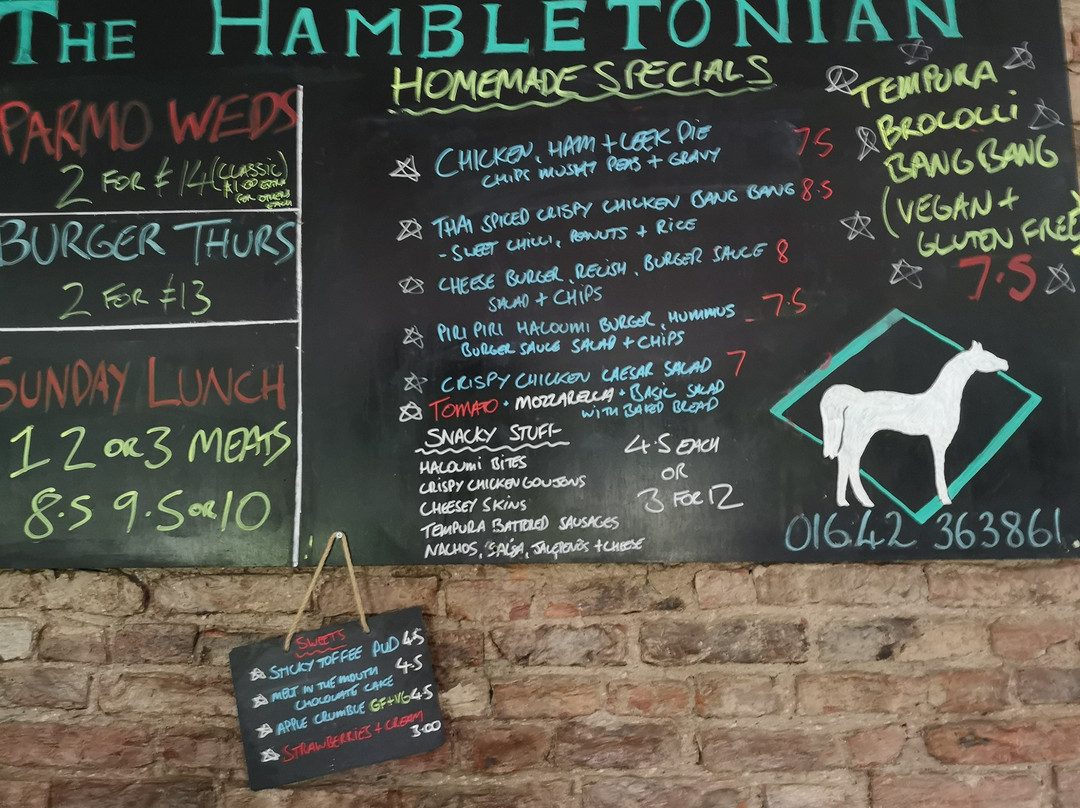 THE HAMBLETONIAN
PARMO WEDS
2 FOR £14 (CLASSIC)
£1.00 EXTRA
FOR OTHERS
EACH
BURGER THURS
2 FOR £13
SUNDAY LUNCH
1 2 OR 3 MEATS
8.5 9.5 OR 10
HOMEMADE SPECIALS
CHICKEN, HAM + LEEK PIE 7.5
CHIPS MUSHY PEAS + GRAVY
THAI SPICED CRISPY CHICKEN BANG BANG 8.5
- SWEET CHILLI, PEANUTS + RICE
CHEESE BURGER, RELISH, BURGER SAUCE 8
SALAD + CHIPS
PIRI PIRI HALOUMI BURGER, HUMMUS 7.5
BURGER SAUCE SALAD + CHIPS
CRISPY CHICKEN CAESAR SALAD 7
TOMATO · MOZZARELLA · BASIC SALAD
WITH BAKED BREAD
SNACKY STUFF
HALOUMI BITES
CRISPY CHICKEN GOUJONS
CHEESEY SKINS
TEMPURA BATTERED SAUSAGES
NACHOS, SALSA, JALEPENOS + CHEESE
4.5 EACH
OR
3 FOR 12
TEMPURA
BROCOLLI
BANG BANG
(VEGAN +
GLUTEN FREE)
7.5
01642 363861
SWEETS
STICKY TOFFEE PUD 4.5
MELT IN THE MOUTH 4.5
CHOCOLATE CAKE
APPLE CRUMBLE GF+VG 4.5
STRAWBERRIES + CREAM
3.00